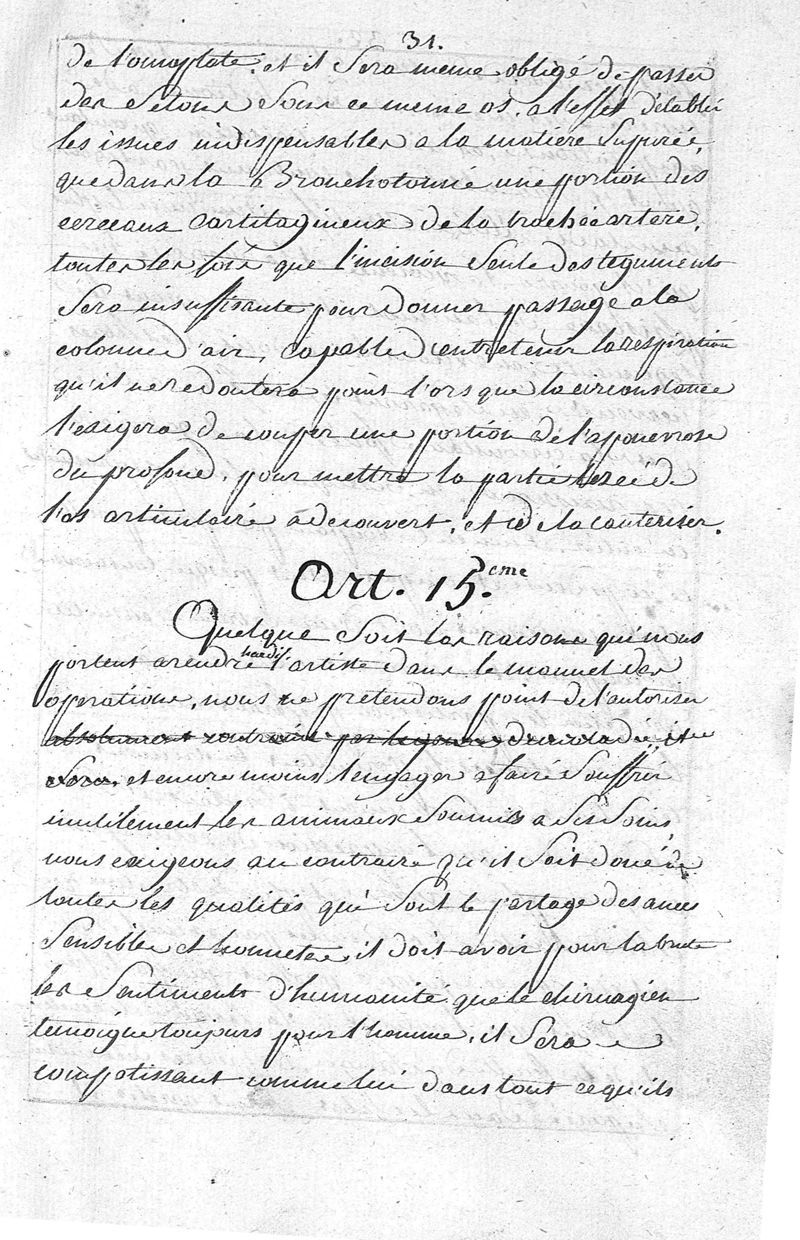 31.
de l'omoplate. et il sera meme obligé de passer
des setons sous ce meme os, a l'effet d'etablir
les issues indispensables a la matiere supurée,
que dans la Bronchotomie une portion des
cerceaux cartilagineux de la trachée artere,
toutes les fois que l'incision seule des teguments
sera insuffisante pour donner passage a la
colonne d'air, capable d'entretenir la respiration
qu'il ne redoutera point l'orsque la circonstance
l'exigera de couper une portion de l'aponevrose
du profond, pour mettre la partie lezée de
l'os articulaire a decouvert, et de la cauteriser.
Art. 15.eme
Quelque soit les raisons qui nous
portent a rendre hardis l'artiste dans le manuel des
operations, nous ne pretendons point de l'autoriser
absolument
et encore moins l'engager a faire souffrir
inutilement les animaux soumis a ses soins
nous exigeons au contraire qu'il soit doué de
toutes les qualités qui sont le partage des ames
sensibles et honnetes, il doit avoir pour la brute
les sentiments d'humanité que le chirurgien
temoigne toujours pour l'homme, il sera
compatissant comme lui dans tout ce qu'ils